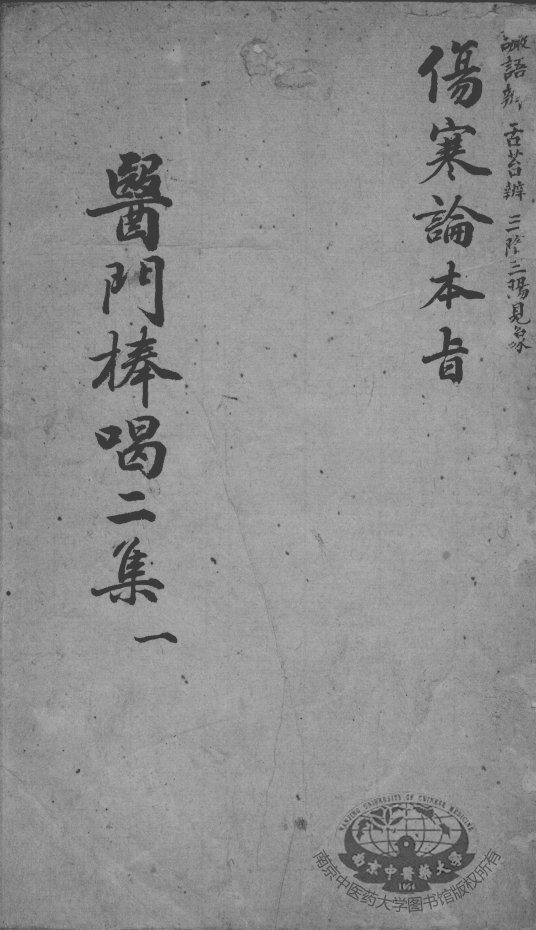 語 舌苔辨 三陰三陽見象
傷寒論本旨
醫門棒喝二集
一
NANJING UNIVERSITY OF CHINESE MEDICINE
南京中醫藥大學
1954
南京中医药大学图书馆版权所有